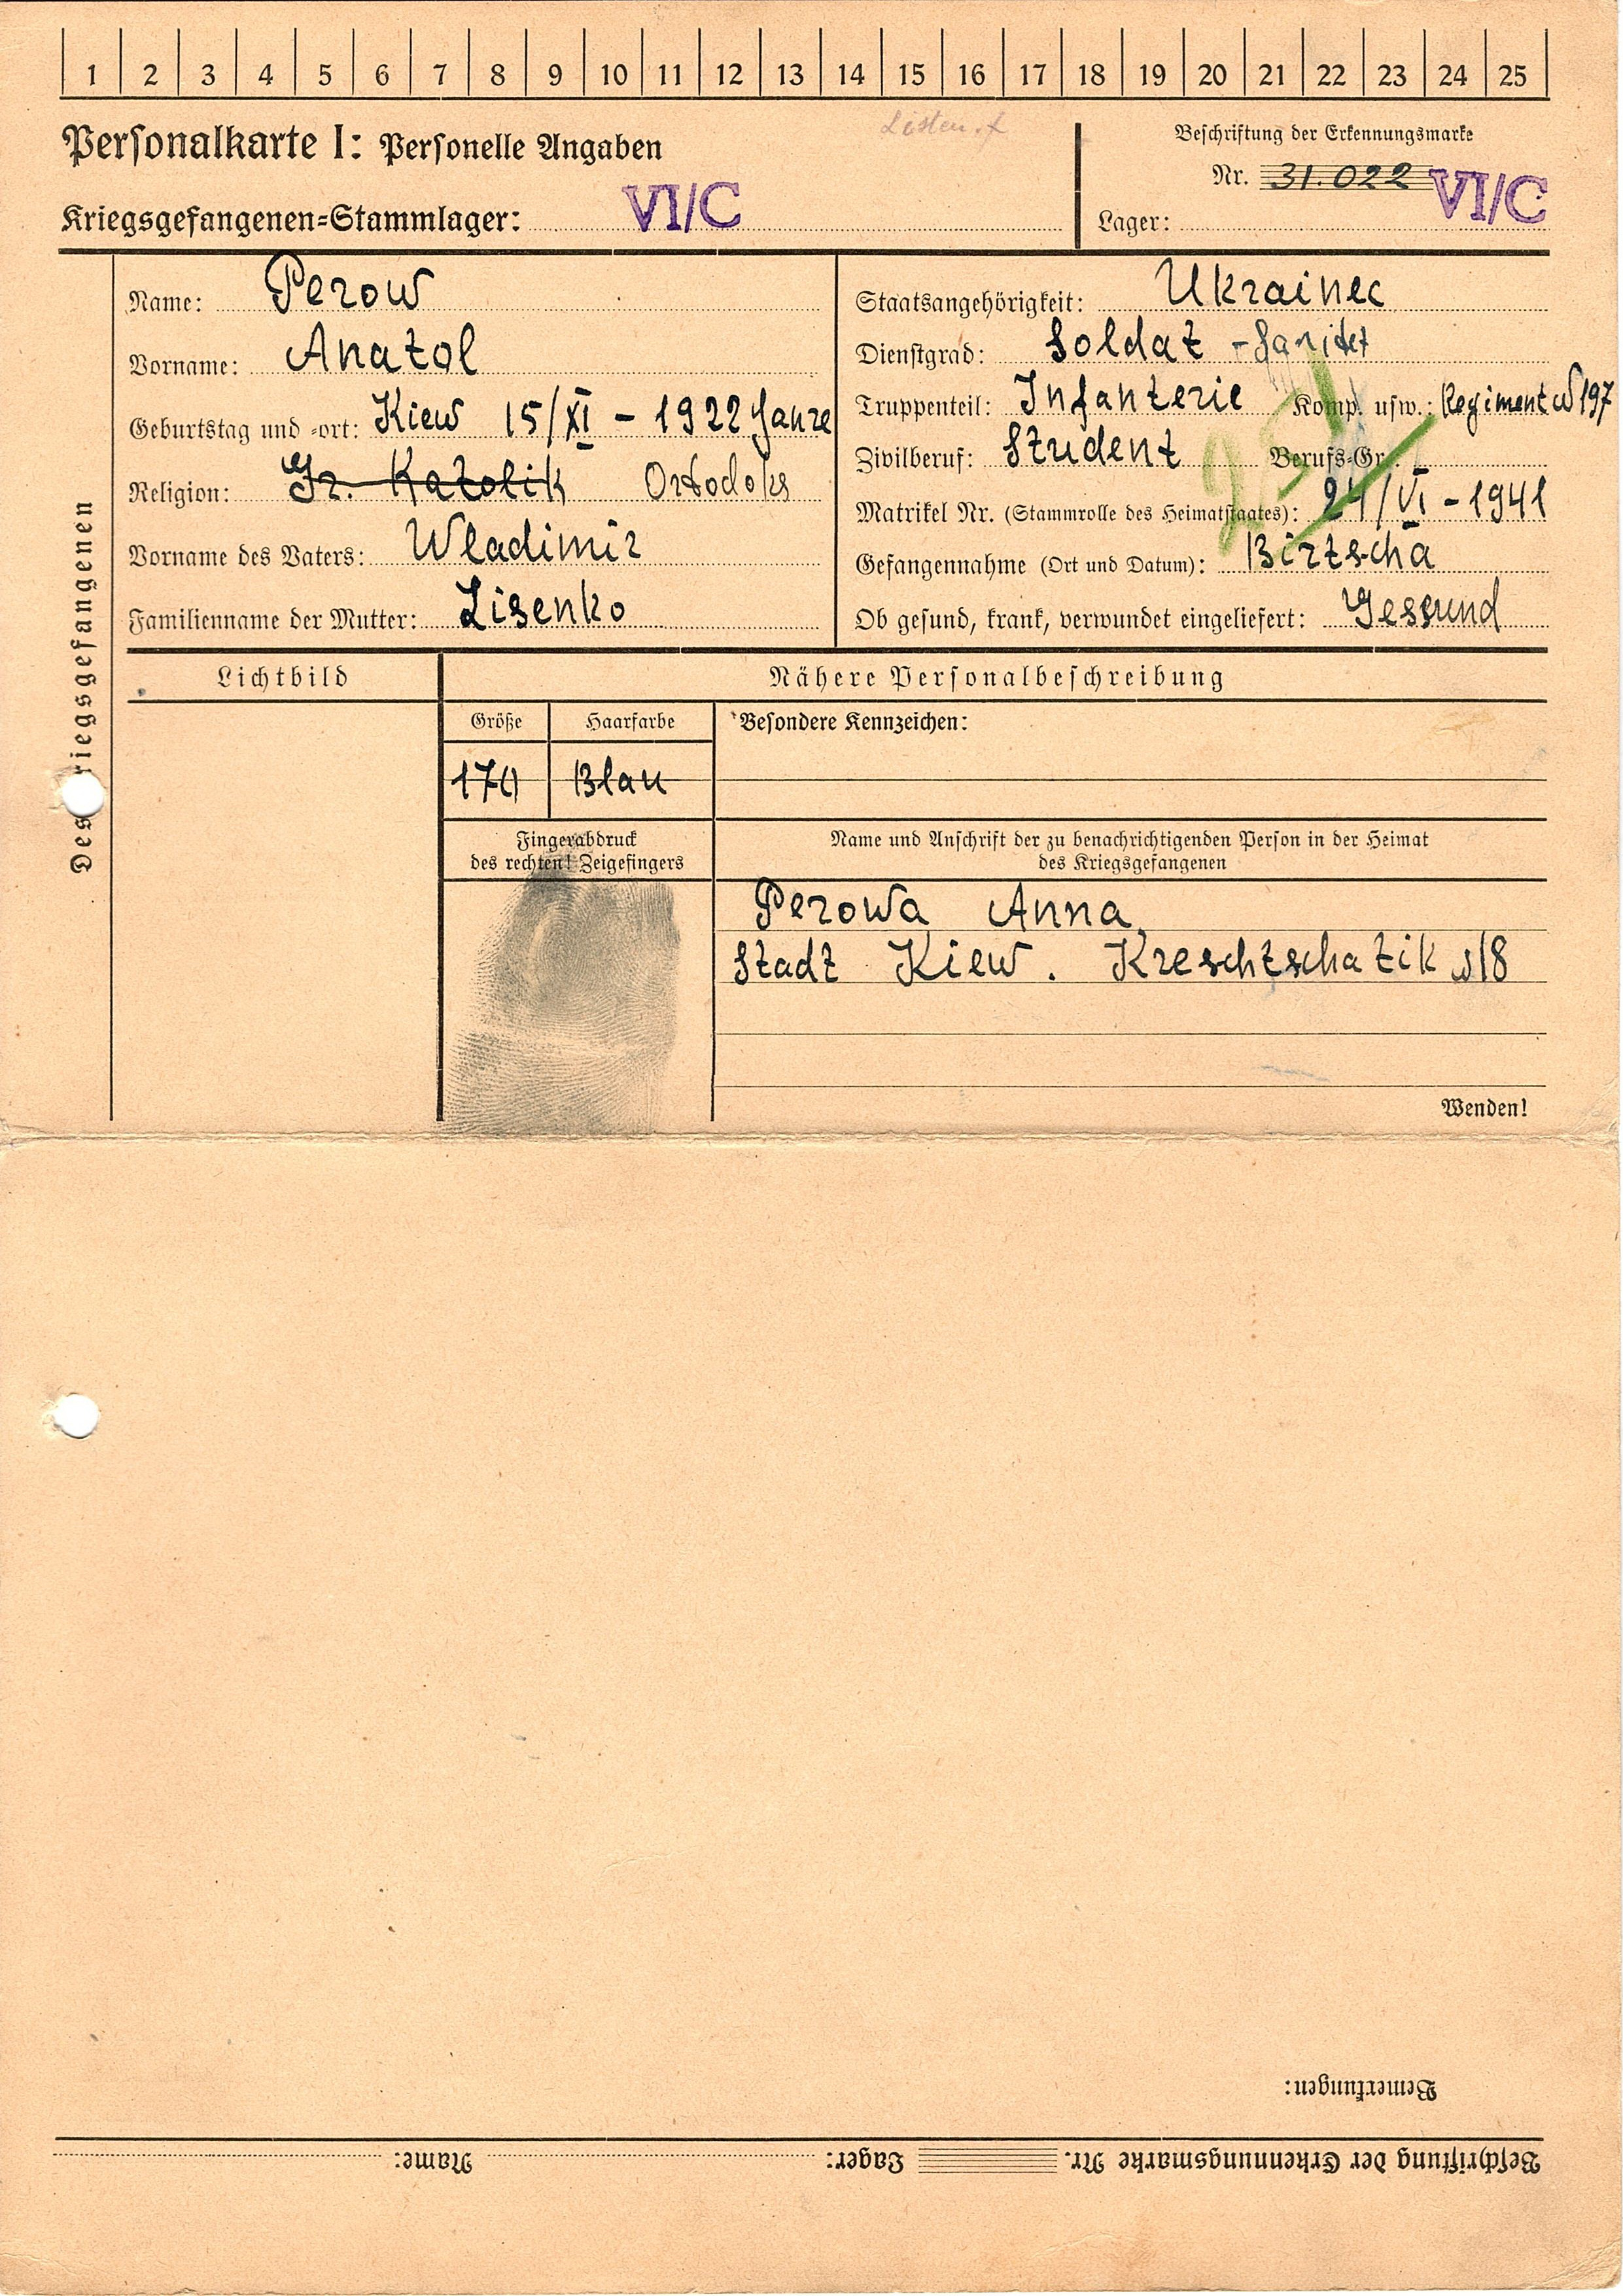 1 2 3 4 5 6 7 8 9 10 11 12 13 14 15 16 17 18 19 20 21 22 23 24 25
Personalkarte I: Personelle Angaben
Kriegsgefangenen-Stammlager: VI/C
Beschriftung der Erkennungsmarke
Nr. 31.022
Lager: VI/C
Des Kriegsgefangenen
Name: Perow
Vorname: Anatol
Geburtstag und -ort: Kiew 15/XI - 1922 Janre
Religion: Gr. Katolik Ortodoks
Vorname des Vaters: Wladimir
Familienname der Mutter: Lisenko
Staatsangehörigkeit: Ukrainec
Dienstgrad: Soldat - Sanitet
Truppenteil: Infanterie Komp. usw.: Regiment N 197
Zivilberuf: Student Berufs-Gr.:
Matrikel Nr. (Stammrolle des Heimatstaates): 24/VI - 1941
Gefangennahme (Ort und Datum): Birtscha
Ob gesund, krank, verwundet eingeliefert: Gessund
Lichtbild
Nähere Personalbeschreibung
Größe Haarfarbe Besondere Kennzeichen:
170 Blau
Fingerabdruck
des rechten! Zeigefingers
Name und Anschrift der zu benachrichtigenden Person in der Heimat
des Kriegsgefangenen
Perowa Anna
Stadt Kiew. Kreschtschatik N/8
Wenden!
Bemerkungen:
Beschriftung der Erkennungsmarke Nr. Lager: Name: